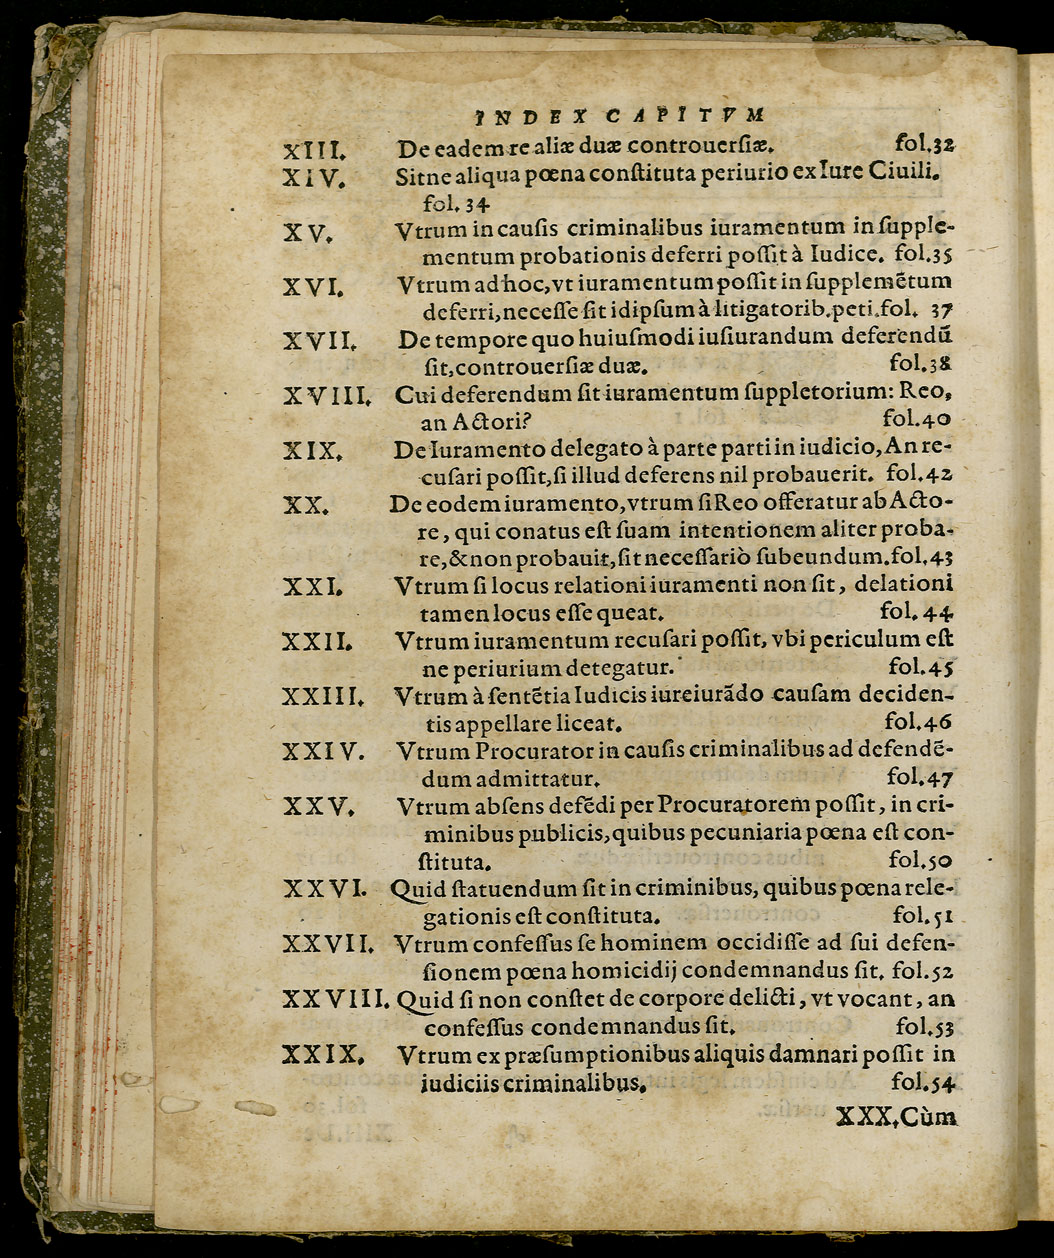 INDEX CAPITVM
XIII. De eadem re aliæ duæ controuerſiæ. fol.32
XIV. Sitne aliqua pœna conſtituta periurio ex Iure Ciuili.
fol. 34
XV. Vtrum in cauſis criminalibus iuramentum in ſupple-
mentum probationis deferri poſſit à Iudice. fol.35
XVI. Vtrum ad hoc, vt iuramentum poſſit in ſupplemẽtum
deferri, neceſſe ſit id ipſum à litigatorib. peti. fol. 37
XVII. De tempore quo huiuſmodi iuſiurandum deferendũ
ſit, controuerſiæ duæ. fol.38
XVIII. Cui deferendum ſit iuramentum ſuppletorium: Reo,
an Actori? fol.40
XIX. De Iuramento delegato à parte parti in iudicio, An re-
cuſari poſſit, ſi illud deferens nil probauerit. fol.42
XX. De eodem iuramento, vtrum ſi Reo offeratur ab Acto-
re, qui conatus eſt ſuam intentionem aliter proba-
re, & non probauit, ſit neceſſariò ſubeundum. fol.43
XXI. Vtrum ſi locus relationi iuramenti non ſit, delationi
tamen locus eſſe queat. fol. 44
XXII. Vtrum iuramentum recuſari poſſit, vbi periculum eſt
ne periurium detegatur. fol.45
XXIII. Vtrum à ſentẽtia Iudicis iureiurãdo cauſam deciden-
tis appellare liceat. fol.46
XXIV. Vtrum Procurator in cauſis criminalibus ad defendẽ-
dum admittatur. fol.47
XXV. Vtrum abſens defẽdi per Procuratorem poſſit, in cri-
minibus publicis, quibus pecuniaria pœna eſt con-
ſtituta. fol.50
XXVI. Quid ſtatuendum ſit in criminibus, quibus pœna rele-
gationis eſt conſtituta. fol.51
XXVII. Vtrum confeſſus ſe hominem occidiſſe ad ſui defen-
ſionem pœna homicidij condemnandus ſit. fol.52
XXVIII. Quid ſi non conſtet de corpore delicti, vt vocant, an
confeſſus condemnandus ſit. fol.53
XXIX. Vtrum ex præſumptionibus aliquis damnari poſſit in
iudiciis criminalibus. fol.54
XXX. Cùm